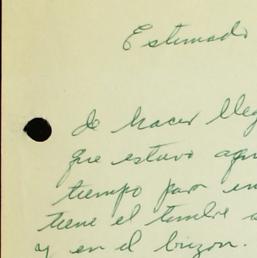 Estimado
de hacer lleg
que estuvo aqu
tiempo par en
tiene el timbre a
y en el buzon.